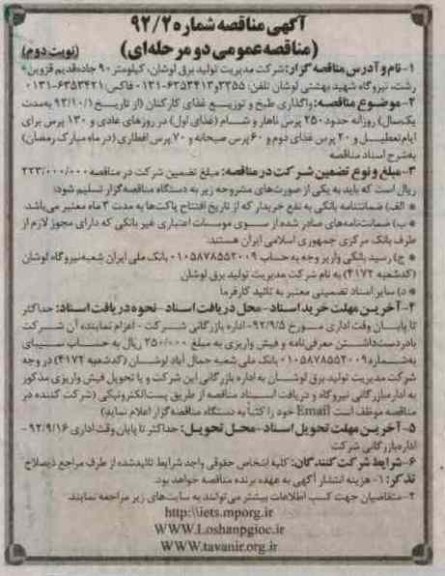 آگهی مناقصه شماره ۹۲/۲
(مناقصه عمومی دو مرحله‌ای) (نوبت دوم)
۱-نام و آدرس مناقصه گزار: شرکت مدیریت تولید برق لوشان، کیلومتر ۹۰ جاده قدیم قزوین-
رشت، نیروگاه شهید بهشتی لوشان تلفن: ۲۳۵۵و۶۳۵۳۴۱۳-۰۱۳۱ فاکس: ۶۳۵۳۴۲۱-۰۱۳۱
۲-موضوع مناقصه: واگذاری طبخ و توزیع غذای کارکنان (از تاریخ ۹۲/۱۰/۱ به مدت
یک سال) روزانه حدود ۲۵۰ پرس ناهار و شام (غذای اول) در روزهای عادی و ۱۳۰ پرس برای
ایام تعطیل و ۲۰ پرس غذای دوم و ۶۰ پرس صبحانه و ۷۰ پرس افطاری (در ماه مبارک رمضان)
به شرح اسناد مناقصه
۳-مبلغ و نوع تضمین شرکت در مناقصه: مبلغ تضمین شرکت در مناقصه ۲۲۳/۰۰۰/۰۰۰
ریال است که باید به یکی از صورت‌های مشروحه زیر به دستگاه مناقصه گزار تسلیم شود:
* الف) ضمانتنامه بانکی به نفع خریدار که از تاریخ افتتاح پاکت‌ها به مدت ۳ ماه معتبر می‌باشد.
* ب) ضمانت‌نامه‌های صادر شده از سوی موسسات اعتباری غیر بانکی که دارای مجوز لازم از
طرف بانک مرکزی جمهوری اسلامی ایران هستند.
* ج) رسید بانکی واریز وجه به حساب ۰۱۰۵۸۷۸۵۵۲۰۰۹ بانک ملی ایران شعبه نیروگاه لوشان
(کدشعبه ۴۱۷۲) به نام شرکت مدیریت تولید برق لوشان.
* د) سایر اسناد تضمینی معتبر به تائید کارفرما
۴-آخرین مهلت خرید اسناد-محل دریافت اسناد-نحوه دریافت اسناد: حداکثر
تا پایان وقت اداری مورخ ۹۲/۹/۵-اداره بازرگانی شرکت-اعزام نماینده آن شرکت
با در دست داشتن معرفی نامه و فیش واریزی به مبلغ ۲۵۰/۰۰۰ ریال به حساب سیبای
به شماره ۰۱۰۵۸۷۸۵۵۲۰۰۹ بانک ملی شعبه جمال آباد لوشان (کدشعبه ۴۱۷۲) در وجه
شرکت مدیریت تولید برق لوشان به اداره بازرگانی این شرکت و یا تحویل فیش واریزی مذکور
به اداره بازرگانی نیروگاه و دریافت اسناد مناقصه از طریق پست الکترونیکی (شرکت کننده در
مناقصه موظف است Email خود را کتباً به دستگاه مناقصه گزار اعلام نماید)
۵-آخرین مهلت تحویل اسناد-محل تحویل: حداکثر تا پایان وقت اداری ۹۲/۹/۱۶-
اداره بازرگانی شرکت
۶-شرایط شرکت کنندگان: کلیه اشخاص حقوقی واجد شرایط تائید شده از طرف مراجع ذیصلاح
تذکر: ۱-هزینه انتشار آگهی به عهده برنده مناقصه خواهد بود.
۲-متقاضیان جهت کسب اطلاعات بیشتر می‌توانند به سایت‌های زیر مراجعه نمایند.
http:\\iets.mporg.ir
WWW.Loshanpgioc.ir
WWW.tavanir.org.ir